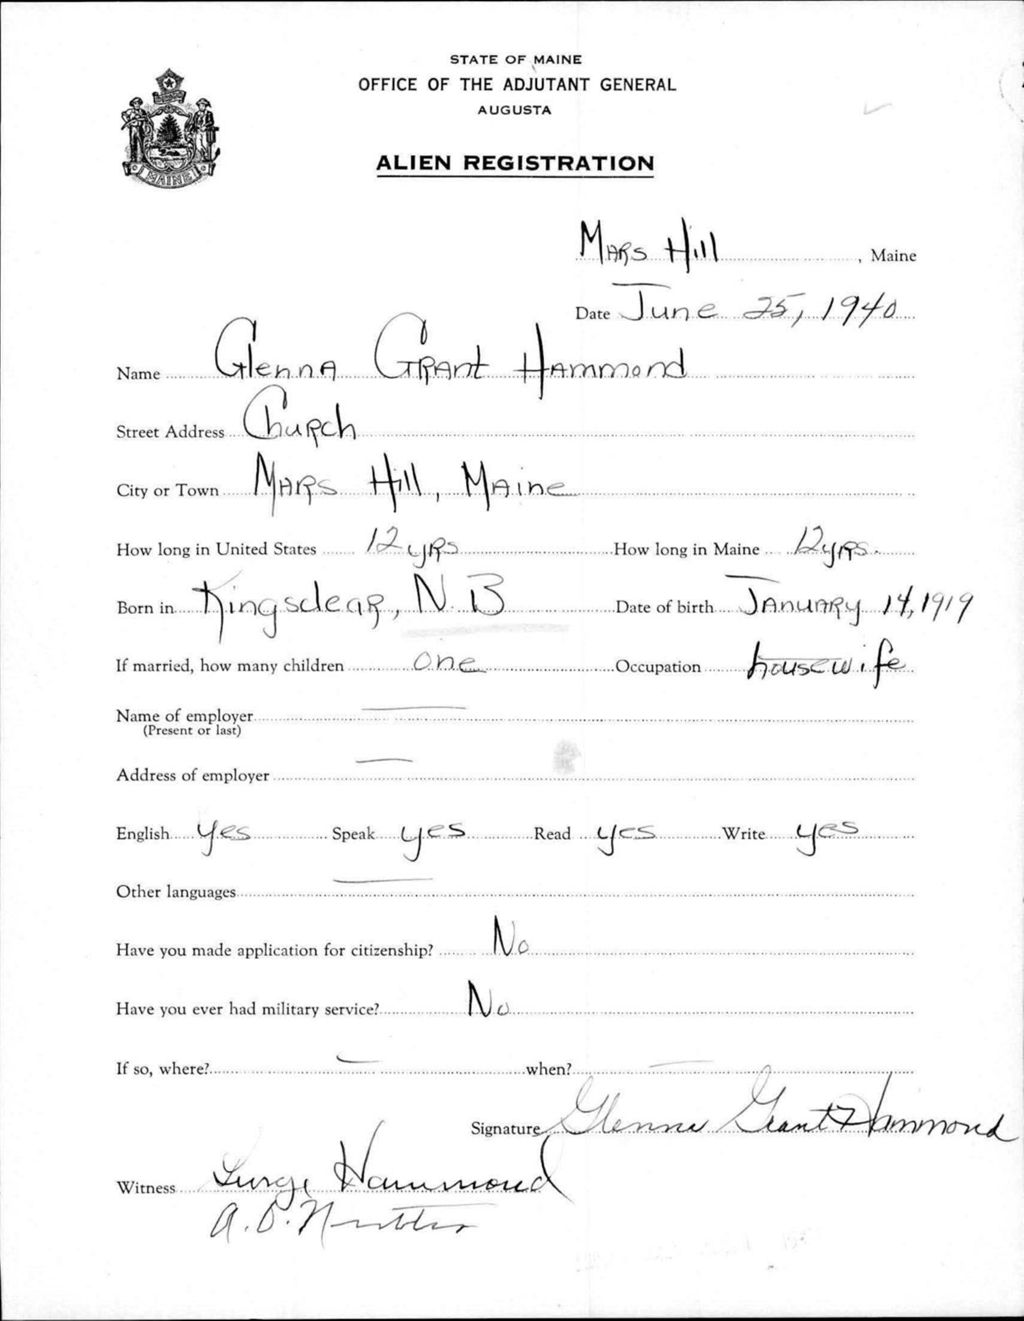 STATE OF MAINE
OFFICE OF THE ADJUTANT GENERAL
AUGUSTA
ALIEN REGISTRATION
MAINE
Mars Hill, Maine
Date June 25, 1940
Name Glenna Grant Hammond
Street Address Church
City or Town Mars Hill, Maine
How long in United States 12 yrs How long in Maine 12 yrs.
Born in Kingsclear, N B Date of birth January 14, 1919
If married, how many children one Occupation housewife
Name of employer
(Present or last)
Address of employer
English yes Speak yes Read yes Write yes
Other languages
Have you made application for citizenship? No
Have you ever had military service? No
If so, where? when?
Signature Glenna Grant Hammond
Witness Hammond
A.